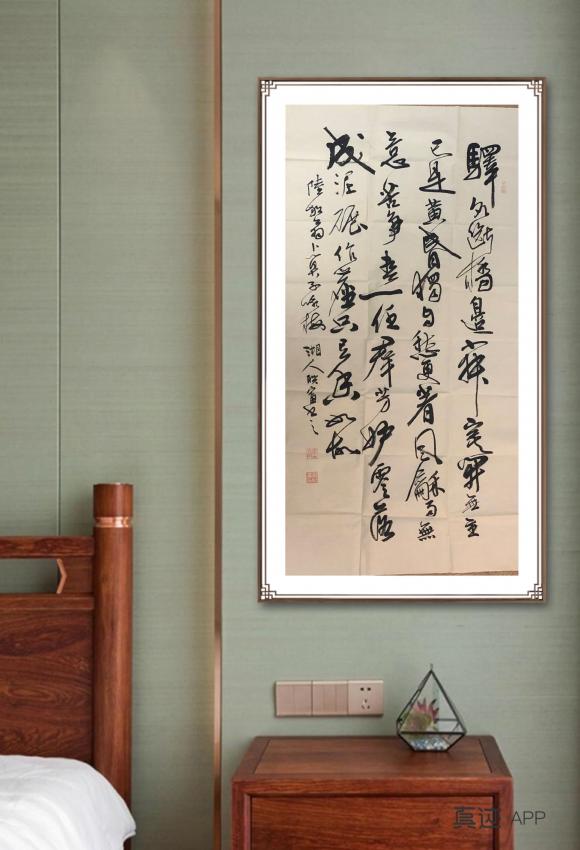 驛外斷橋邊寂寞開無主
已是黃昏獨自愁更著風龢雨無
意苦爭春一任羣芳妒零落
成泥碾作塵只有香如故
陸放翁卜算子咏梅 湖人書之
真迹 APP